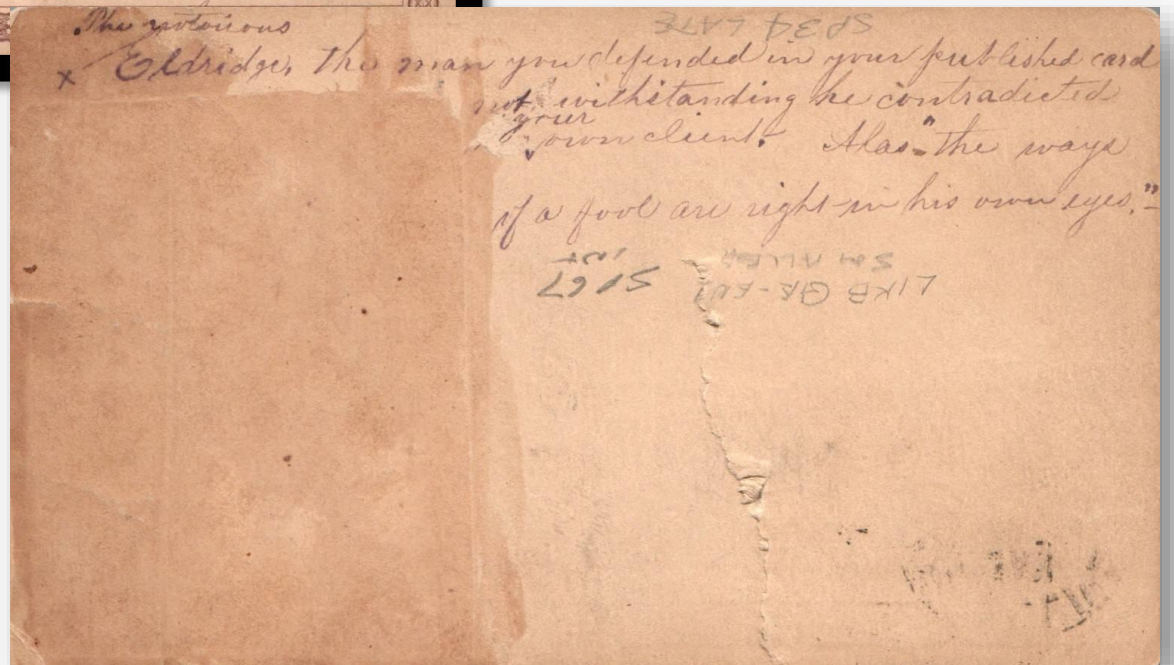 The notorious
x Eldridge, the man you defended in your published card
not withstanding he contradicted
your
own client. Alas "the ways
of a fool are right in his own eyes."
SP34 LATE
SP67
LIKE